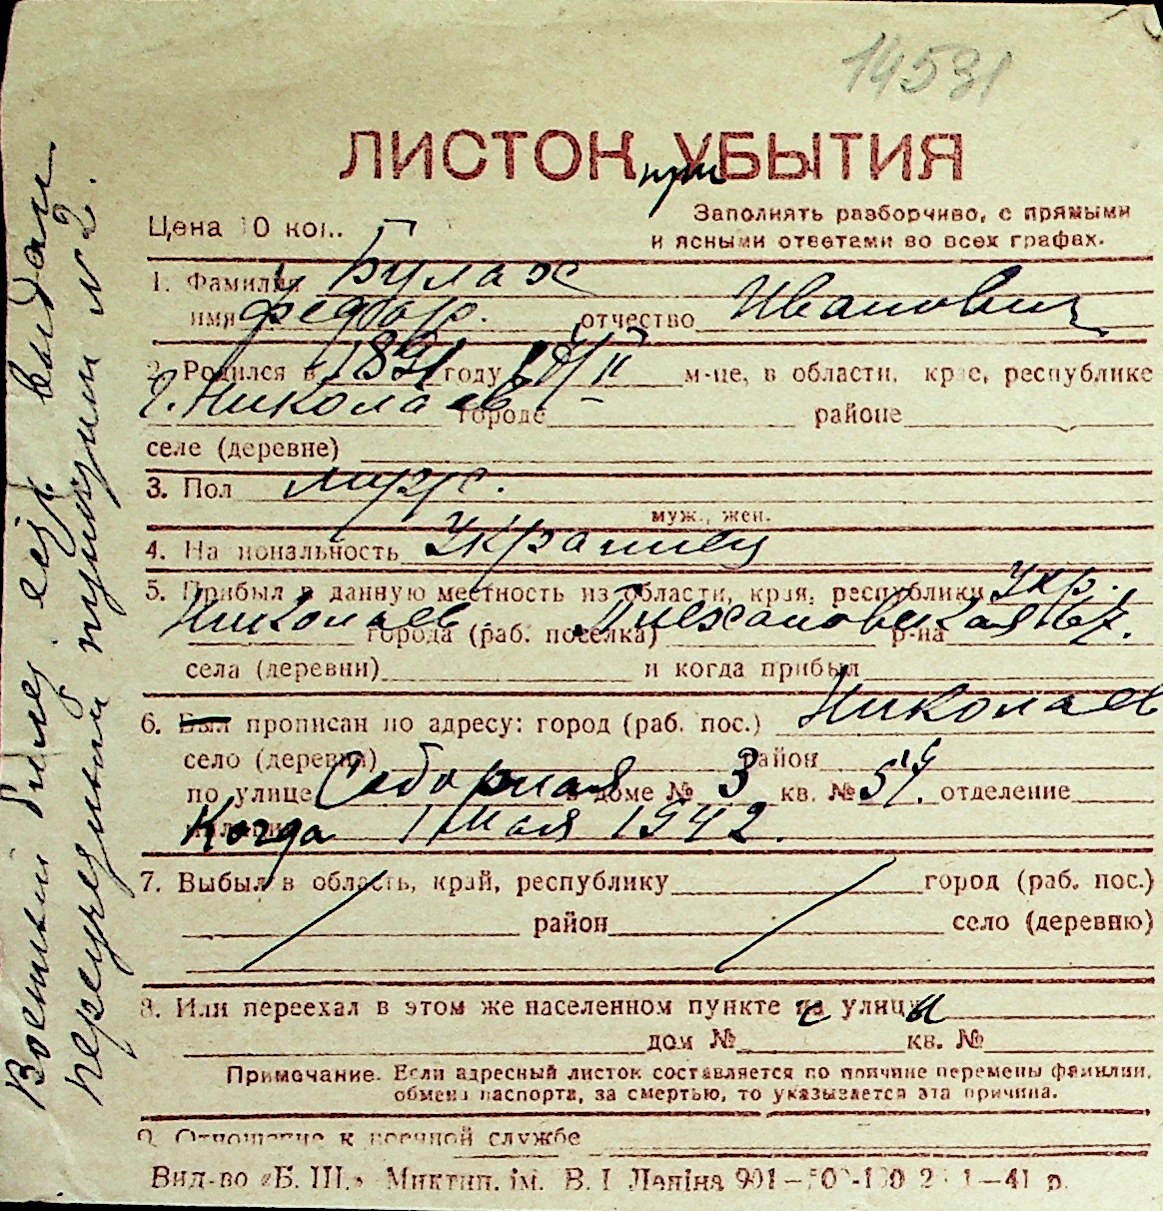 14531
ЛИСТОК УБЫТИЯ
при
Цена 10 коп.
Заполнять разборчиво, с прямыми
и ясными ответами во всех графах.
1. Фамилия Булах
имя Федор. отчество Иванович
2. Родился в 1891 году 8/II м-це, в области, крае, республике
г. Николаев городе районе
селе (деревне)
3. Пол муж.
муж., жен.
4. Национальность Украинец
5. Прибыл в данную местность из области, края, республики Укр.
Николаев города (раб. поселка) Плехановская 67. р-на
села (деревни) и когда прибыл
6. Был прописан по адресу: город (раб. пос.) Николаев
село (деревня) район
по улице Соборная в доме № 3 кв. № 54. отделение
Когда 1 Мая 1942.
7. Выбыл в область, край, республику город (раб. пос.)
район село (деревню)
8. Или переехал в этом же населенном пункте с улицы
дом № кв. №
Примечание. Если адресный листок составляется по причине перемены фамилии,
обмена паспорта, за смертью, то указывается эта причина.
9. Отношение к военной службе
Вид-во «Б. Ш.» Миктип. ім. В. І Лепіна 901—41 р.
Военный билет выдан
№ 2.